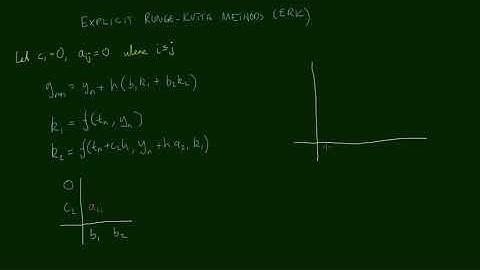 EXPLICIT RUNGE-KUTTA METHODS (ERK)
Let c₁=0, aᵢⱼ=0 where i≤j
yₙ₊₁ = yₙ + h(b₁k₁ + b₂k₂)
k₁ = f(tₙ, yₙ)
k₂ = f(tₙ+c₂h, yₙ+h a₂,k₁)
0
c₂
b₁ b₂